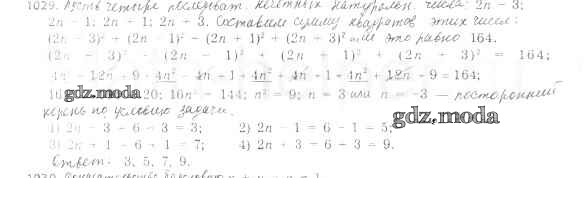 1029. Пусть четыре последоват. нечетных натуральн. числа: 2n – 3;
2n – 1; 2n + 1; 2n + 3. Составим сумму квадратов этих чисел:
(2n – 3)² + (2n – 1)² + (2n + 1)² + (2n + 3)² или это равно 164.
(2n – 3)² + (2n – 1)² + (2n + 1)² + (2n + 3)² = 164;
4n² – 12n + 9 + 4n² – 4n + 1 + 4n² + 4n + 1 + 4n² + 12n + 9 = 164;
16n² 20; 16n² – 144; n² = 9; n = 3 или n = –3 — посторонний
gdz.moda
корень по условию задачи.
gdz.moda
1) 2n – 3 = 6 – 3 = 3; 2) 2n – 1 = 6 – 1 = 5;
3) 2n + 1 = 6 + 1 = 7; 4) 2n + 3 = 6 + 3 = 9.
Ответ: 3, 5, 7, 9.